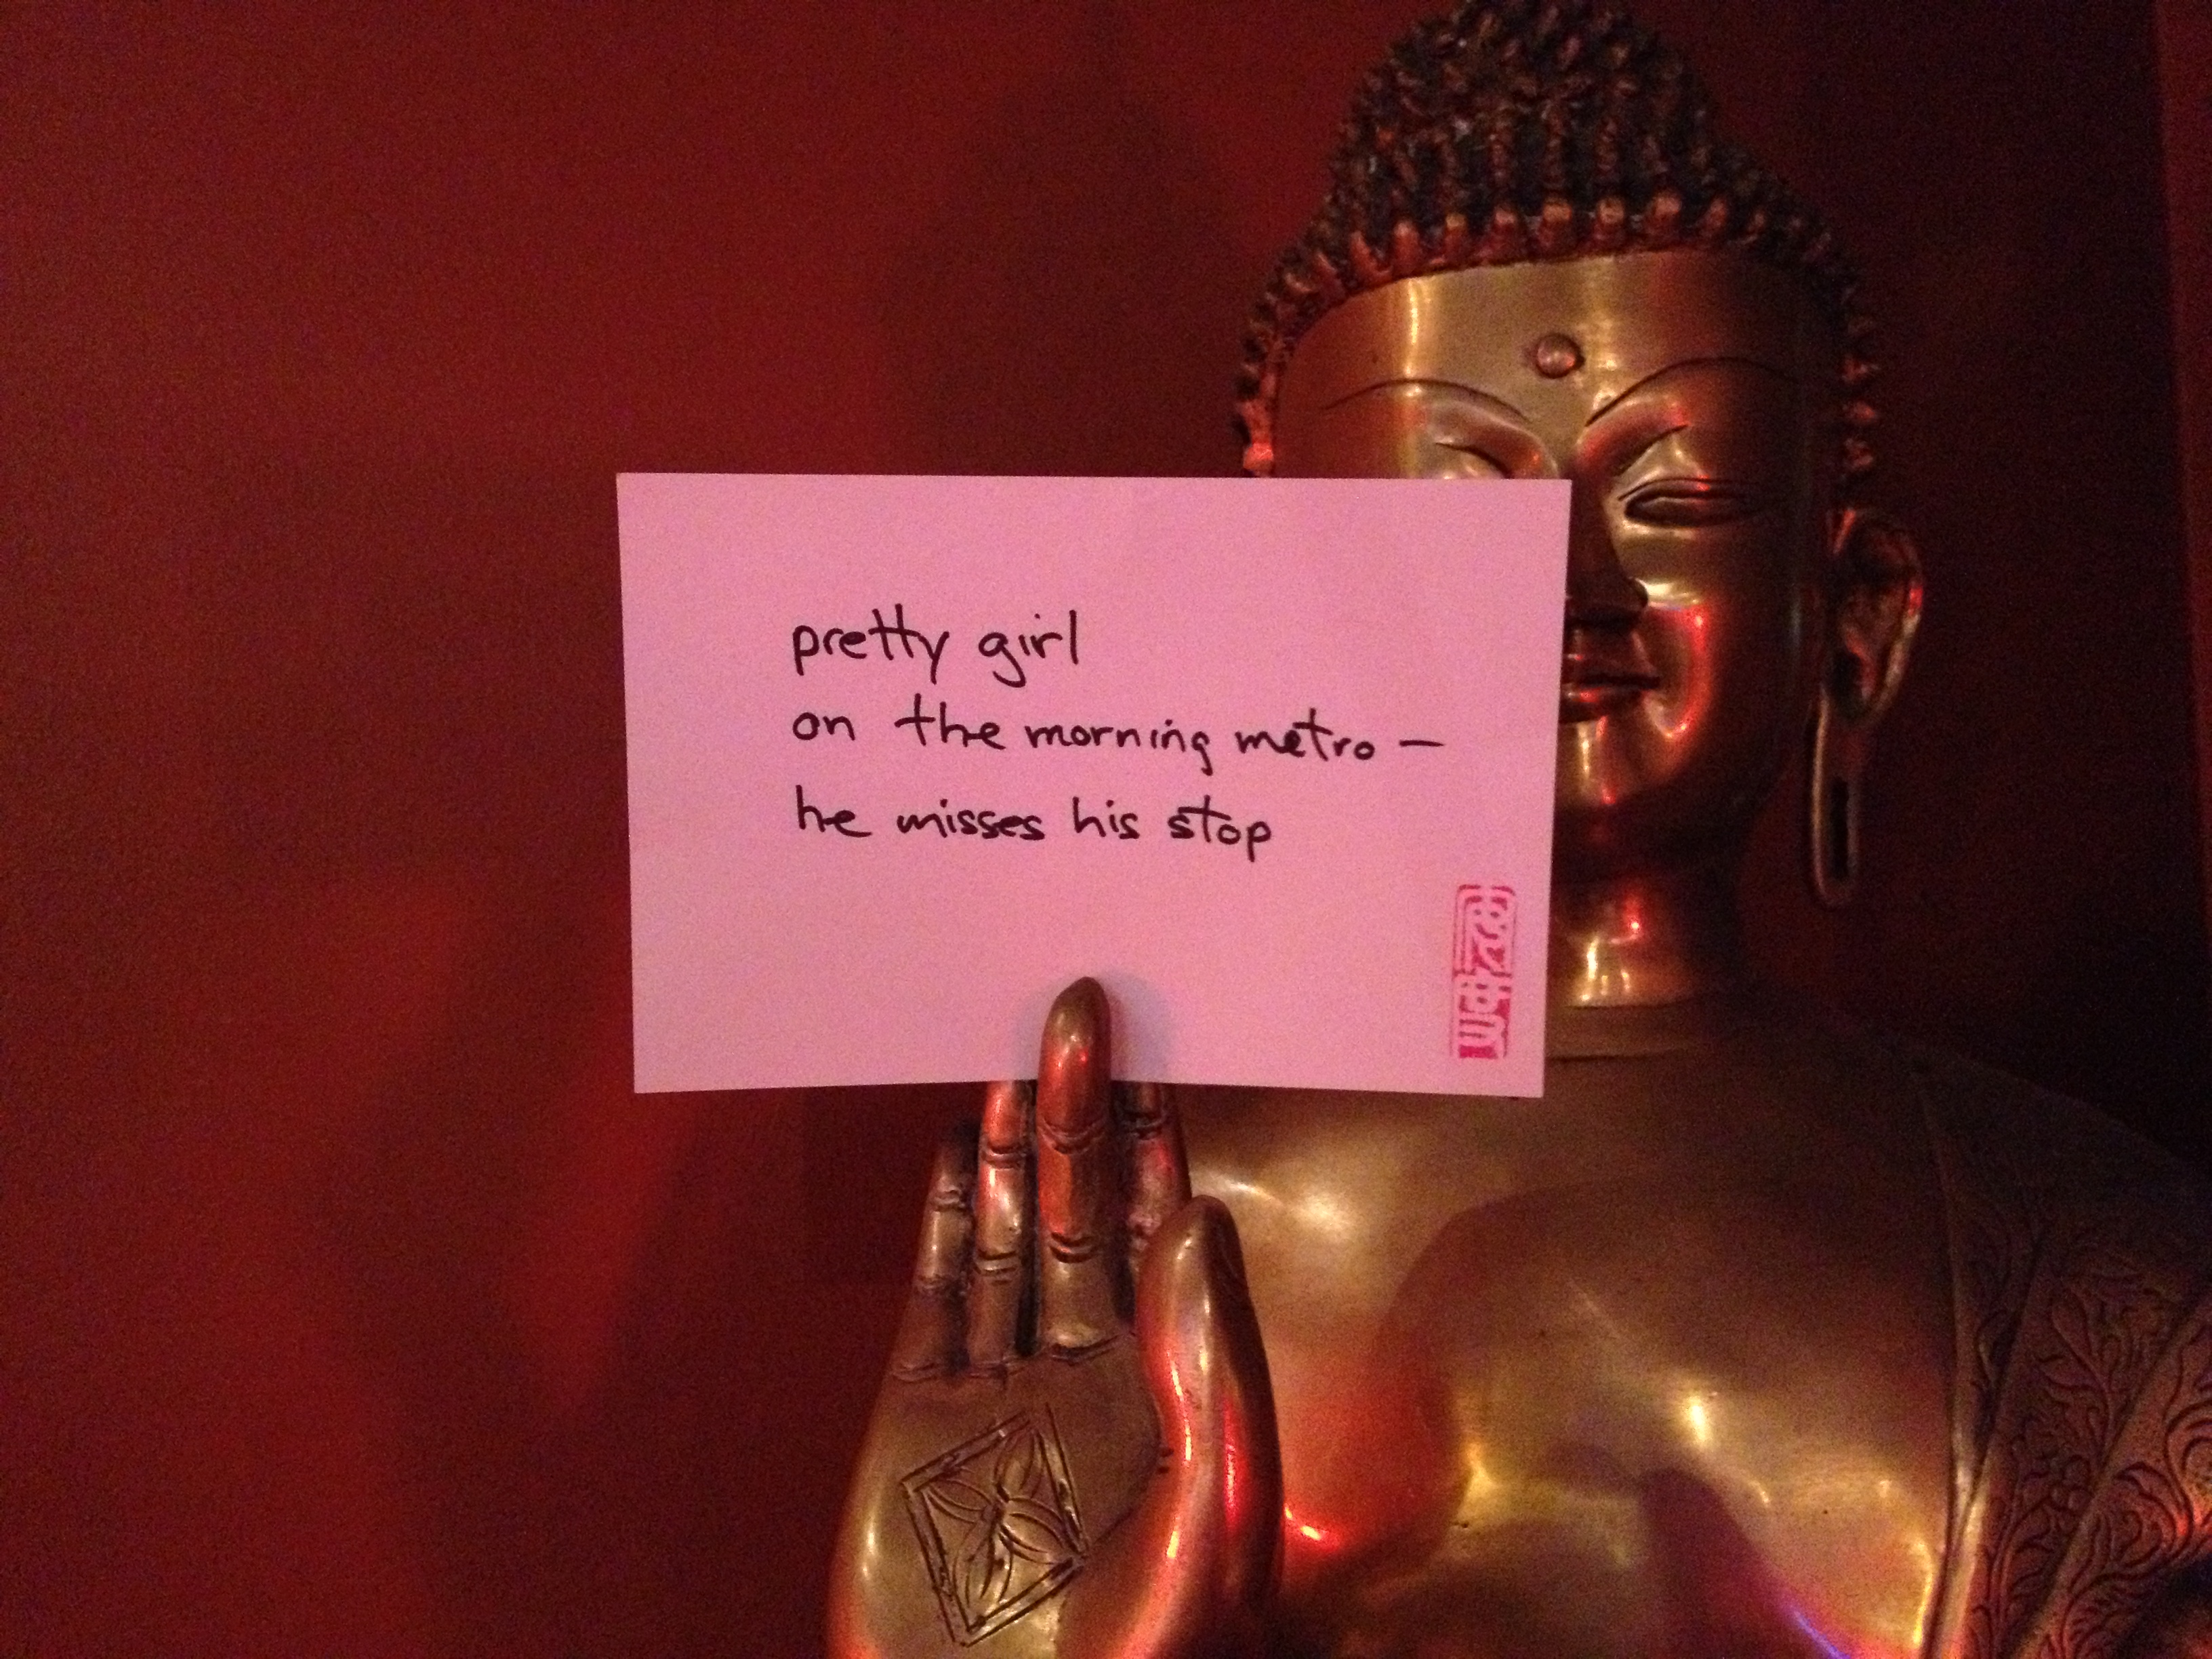 pretty girl
on the morning metro —
he misses his stop